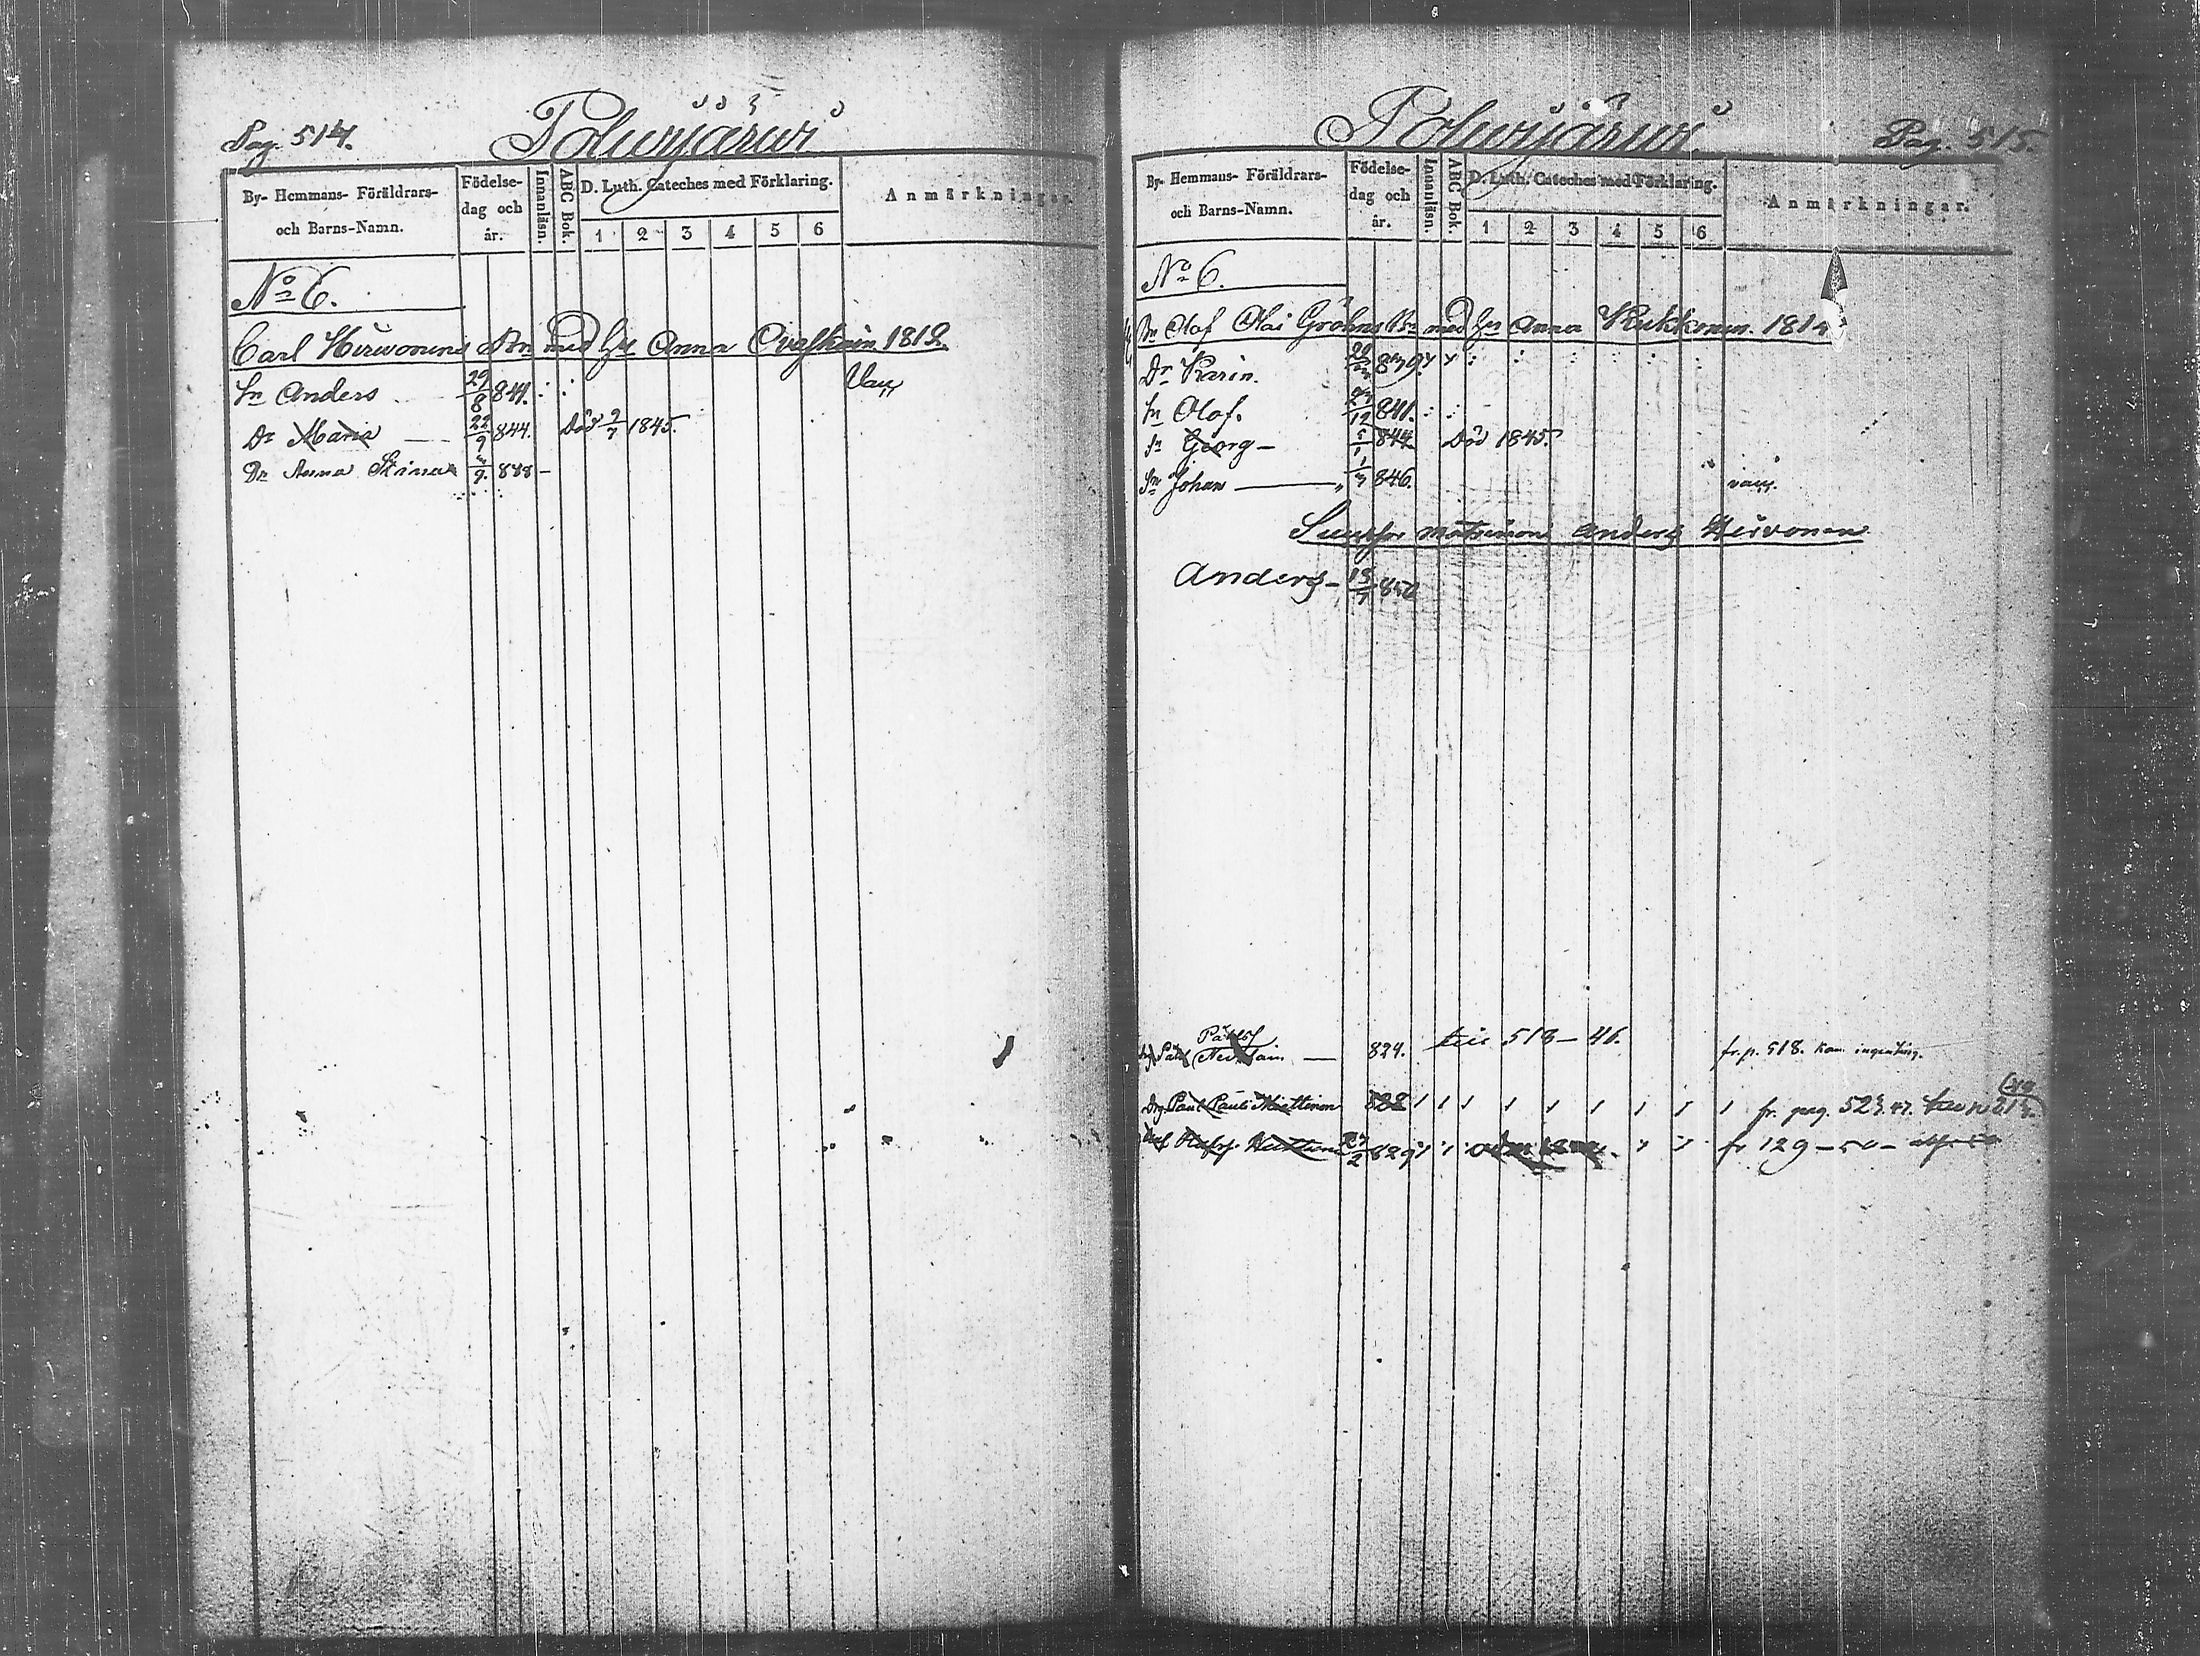 Pag. 514.
Polwijärwi
By- Hemmans- Föräldrars- och Barns-Namn.
Födelse-dag och år.
Innanläsn.
ABC Bok.
D. Luth. Cateches med Förklaring.
1 2 3 4 5 6
Anmärkningar.
No 6.
Carl Hirwonens Bn med Hu Anna Ovaskain 1812.
Sn Anders 29/8 841. Vac
Dr Maria 22/9 844. Död 9/7 1845.
Dr Anna Stina 848 –
Pag. 515.
Polwijärwi.
By- Hemmans- Föräldrars- och Barns-Namn.
Födelse-dag och år.
Innanläsn.
ABC Bok.
D. Luth. Cateches med Förklaring.
1 2 3 4 5 6
Anmärkningar.
No 6.
Olof Olai Gröhns Bn med Hu Anna Kukkonen. 1814
Dr Karin. 839
Sn Olof. 27/12 841.
Sn Georg – 844 Död 1845.
Sn Johan 846. vac.
Anders Hirvonen
Anders – 15/7 850
824. 518 – 46. fr. p. 518. Kom ingenting.
Drg. Paul Pauli Miettinen 828 fr. pag. 523. 47.
27/2 829 fr 129 – 50 –